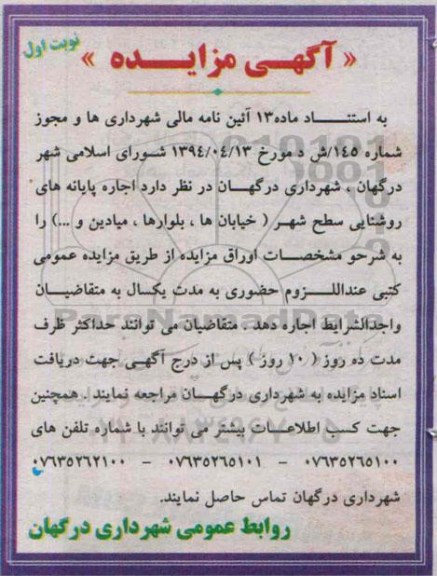 نوبت اول
« آگهـی مزایـــده »
به استنـــــاد ماده۱۳ آئین نامه مالی شهرداری ها و مجوز
شماره ۱۴۵/ش د مورخ ۱۳۹۴/۰۴/۱۳ شـورای اسلامی شهر
درگهان ، شهرداری درگهـــان در نظر دارد اجاره پایانه های
روشنایی سطح شهـر ( خیابان ها ، بلوارها ، میادین و ...) را
به شرحو مشخصـات اوراق مزایده از طریق مزایده عمومی
کتبی عنداللـــزوم حضوری به مدت یکسال به متقاضیـان
واجدالشرایط اجاره دهد . متقاضیان می توانند حداکثر ظرف
مدت ده روز ( ۱۰ روز ) پس از درج آگهـی جهت دریافت
اسناد مزایده به شهرداری درگهـان مراجعه نمایند . همچنین
جهت کسب اطلاعـات بیشتر می توانند با شماره تلفن های
۰۷۶۳۵۲۶۵۱۰۰ – ۰۷۶۳۵۲۶۵۱۰۱ – ۰۷۶۳۵۲۶۲۱۰۰
شهرداری درگهان تماس حاصل نمایند.
روابط عمومی شهرداری درگهان
ParsNamadData